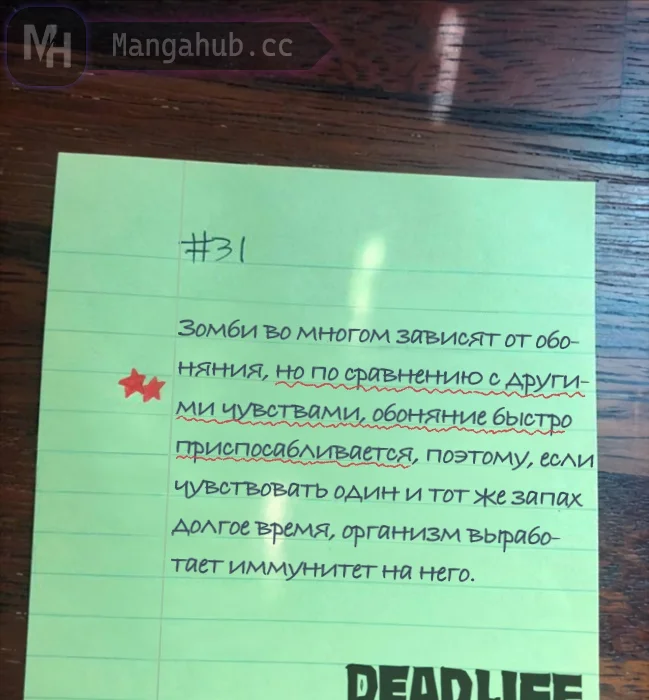 MH Mangahub.cc
#31
Зомби во многом зависят от обо-
няния, но по сравнению с други-
ми чувствами, обоняние быстро
приспосабливается, поэтому, если
чувствовать один и тот же запах
долгое время, организм вырабо-
тает иммунитет на него.
DEADLIFE